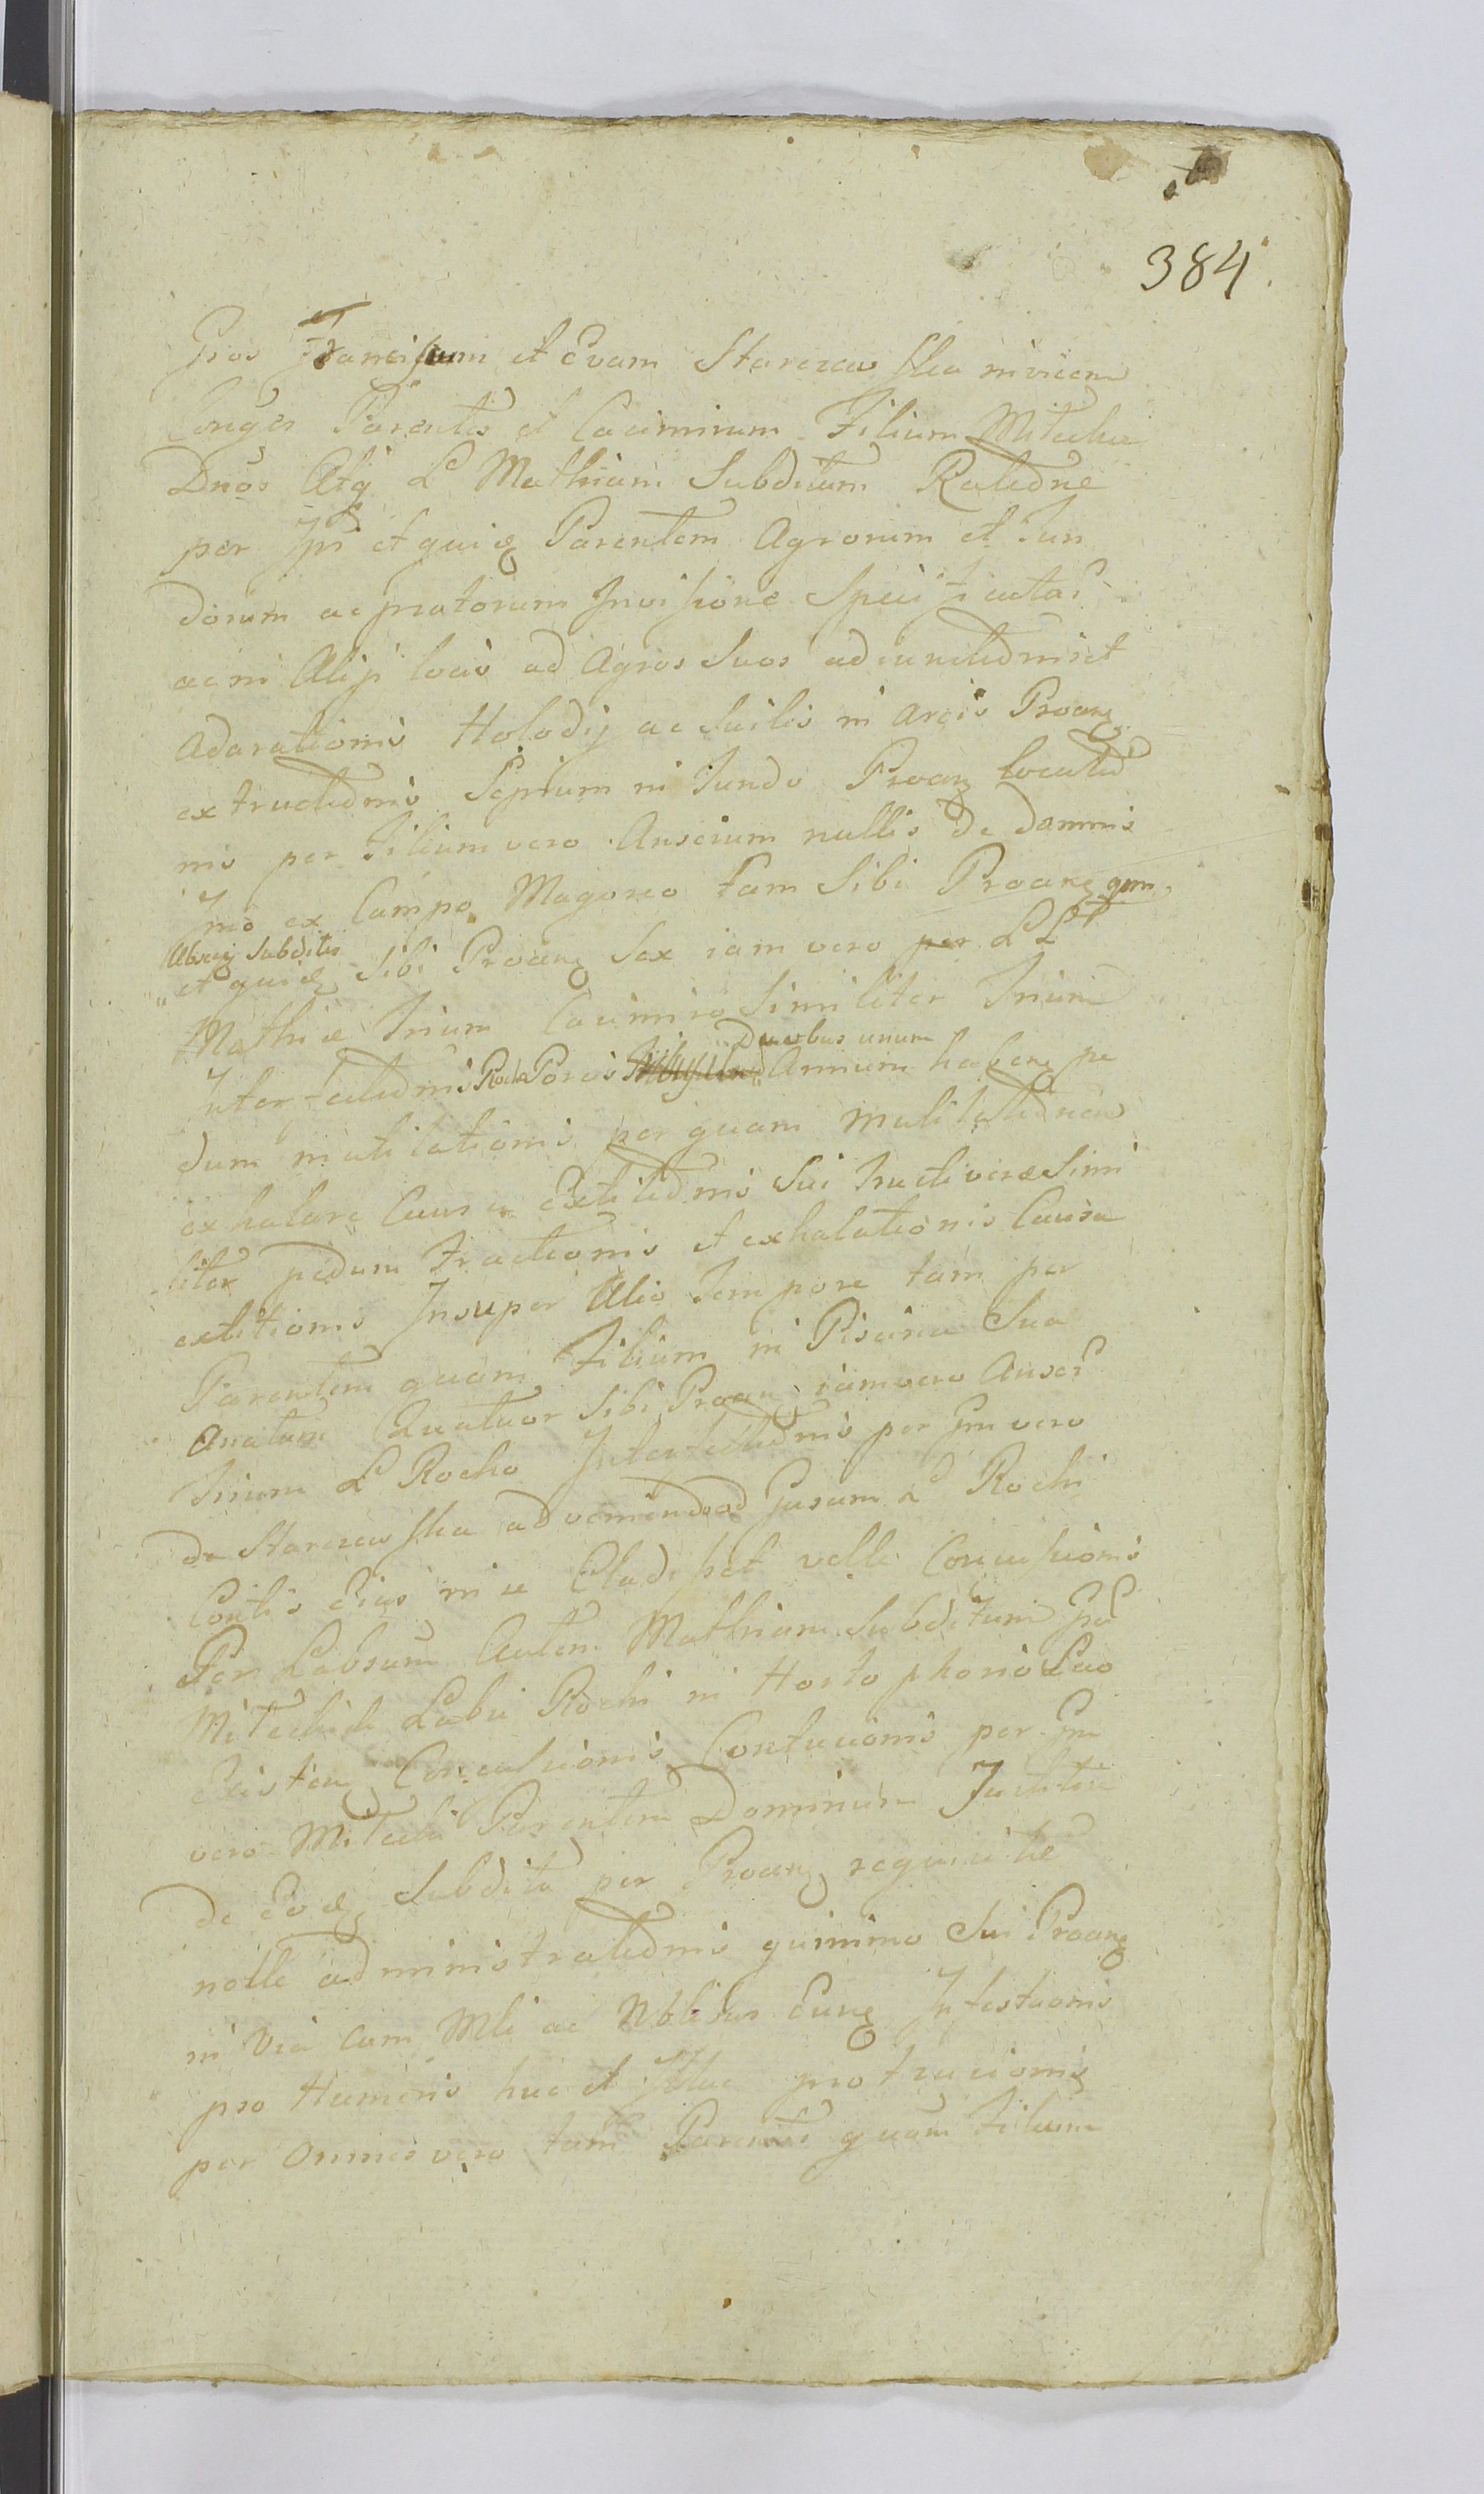 384.
Gsos Franciscum et Evam Starczewska invicem
Conges Parentes et Casimirum Filium Mitecha
Dnos Atq L Mathiam Subditum Raledne
per Ips et quidq Parentem Agrorum et Fun
dorum ac pratorum Invisione Specificatar
ac in Alys locis ad Agros Suos adiunctednis et
Adarationis Holodij ac Suilis in Areis Proang
extructednis Sepium in Fundo Proang located
nis per Filium vero Anserum nullis de damnis
Imo ex Campo Magoreo tam Sibi Proang qm
Absq Subditis
et quidq Sibi Proang Sex iam vero per L L
Mathiæ Trium Casimiro Similiter Trium
Duobus unum
Intertectednis Rocho Porcis Annum habeng pe
dum mutilationis per quam mutilatednem
exhalare Causa Extitednis Sui Fructiveræ Simi
liter pedum Fractionis et exhalationis Causa
extitionis Insuper Alio Tempore tam per
Parentem quam Filium in Piscina Sua
Anatum Quatuor Sibi Proang iam vero Anser
Trium L Rocho Intertectednis per Gm vero
de Starczewska advemendod Gusum L Rochi
Contis Eius in Clade pat velle Concussionis
Per Labsum Autem Mathiam Subditum Gs
Mitechide Labii Rochi in Horto phorio Suo
Existeng Concussionis Contusionis per Gm
vero Mitecha Parentem Dominum Justitia
de Eodq Subdito per Proang requisitæ
nolle administratednis quinimo Sui Proang
in Via cum Mli ac Nobilibus Eung Intestuonis
pro Humeris huc et Illuc protracionis
per Omnes vero tam Parentes quam Filium